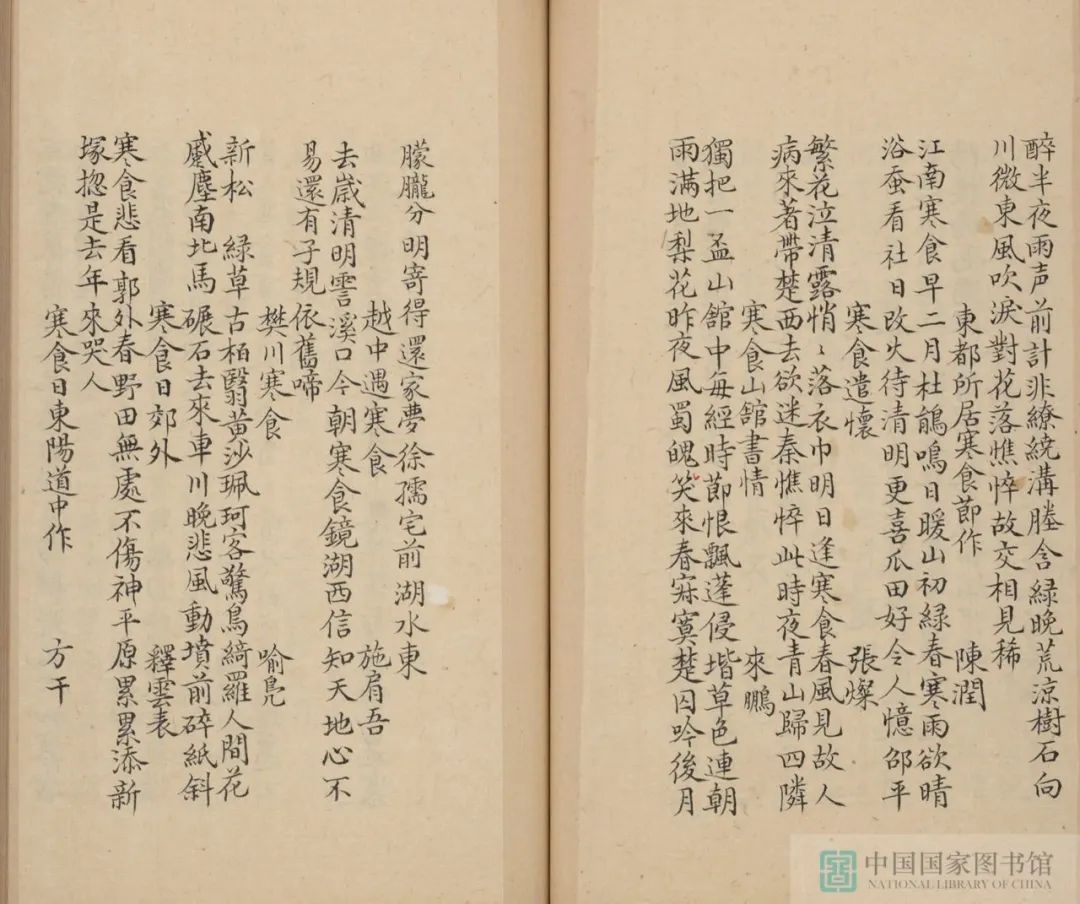 醉半夜雨声前計非繚繞溝塍含綠晚荒涼樹石向
川微東風吹淚對花落憔悴故交相見稀
東都所居寒食節作 陳潤
江南寒食早二月杜鵑鳴日暖山初綠春寒雨欲晴
浴蚕看社日改火待清明更喜瓜田好令人憶邵平
寒食遣懷 張燦
繁花泣清露悄〻落衣巾明日逢寒食春風見故人
病來著帶楚西去欲迷秦憔悴此時夜青山歸四隣
寒食山舘書情 來鵬
獨把一盃山舘中每經時節恨飄蓬侵堦草色連朝
雨滿地梨花昨夜風蜀魄笑來春寂寞楚囚吟後月
朦朧分明寄得還家夢徐孺宅前湖水東
越中遇寒食 施肩吾
去歲清明霅溪口今朝寒食鏡湖西信知天地心不
易還有子規依舊啼
樊川寒食 喻鳧
新松 綠草古栢翳黃沙珮珂客驚鳥綺羅人間花
蹙塵南北馬碾石去來車川晚悲風動墳前碎紙斜
寒食日郊外 釋雲表
寒食悲看郭外春野田無處不傷神平原累累添新
塚揔是去年來哭人
寒食日東陽道中作 方干
中国国家图书馆
NATIONAL LIBRARY OF CHINA